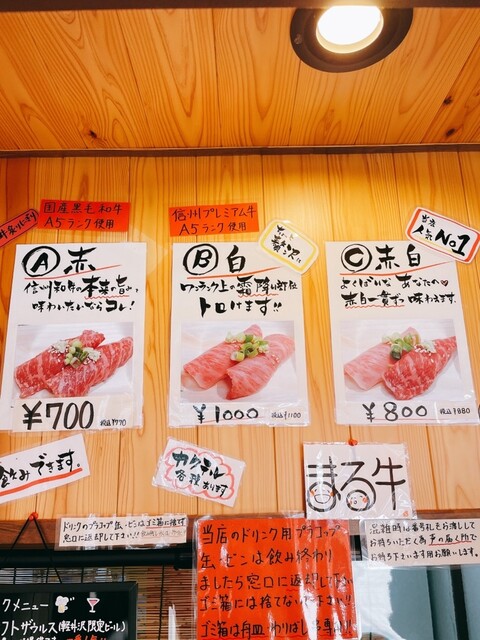 国産黒毛和牛
A5ランク使用
Ⓐ赤
信州和牛の本来の旨い
味わいたいならコレ!
¥700
税込¥770
信州プレミアム牛
A5ランク使用
Ⓑ白
ワンランク上の霜降り部位
トロけます!!
¥1000
税込¥1100
当店
人気No1
Ⓒ赤白
よくばりなあなたの♡
赤白一貫ずつ味わえます。
¥800
税込¥880
飲みできます。
カクテル
各種あります
まる牛
ドリンクのプラコップ缶、ビンはゴミ箱に捨てず
窓口に返却して下さい!!
当店のドリンク用プラコップ
缶・ビンは飲み終わり
ましたら窓口に返却して下さい
ゴミ箱には捨てないで下さい
ゴミ箱は舟皿 わりばし
品雑時は番号札をお渡しして
お待ちいただく為 声の届く所で
お待ち下さいます用お願いします。
クメニュー
フトザウルス(軽井沢限定ビール)